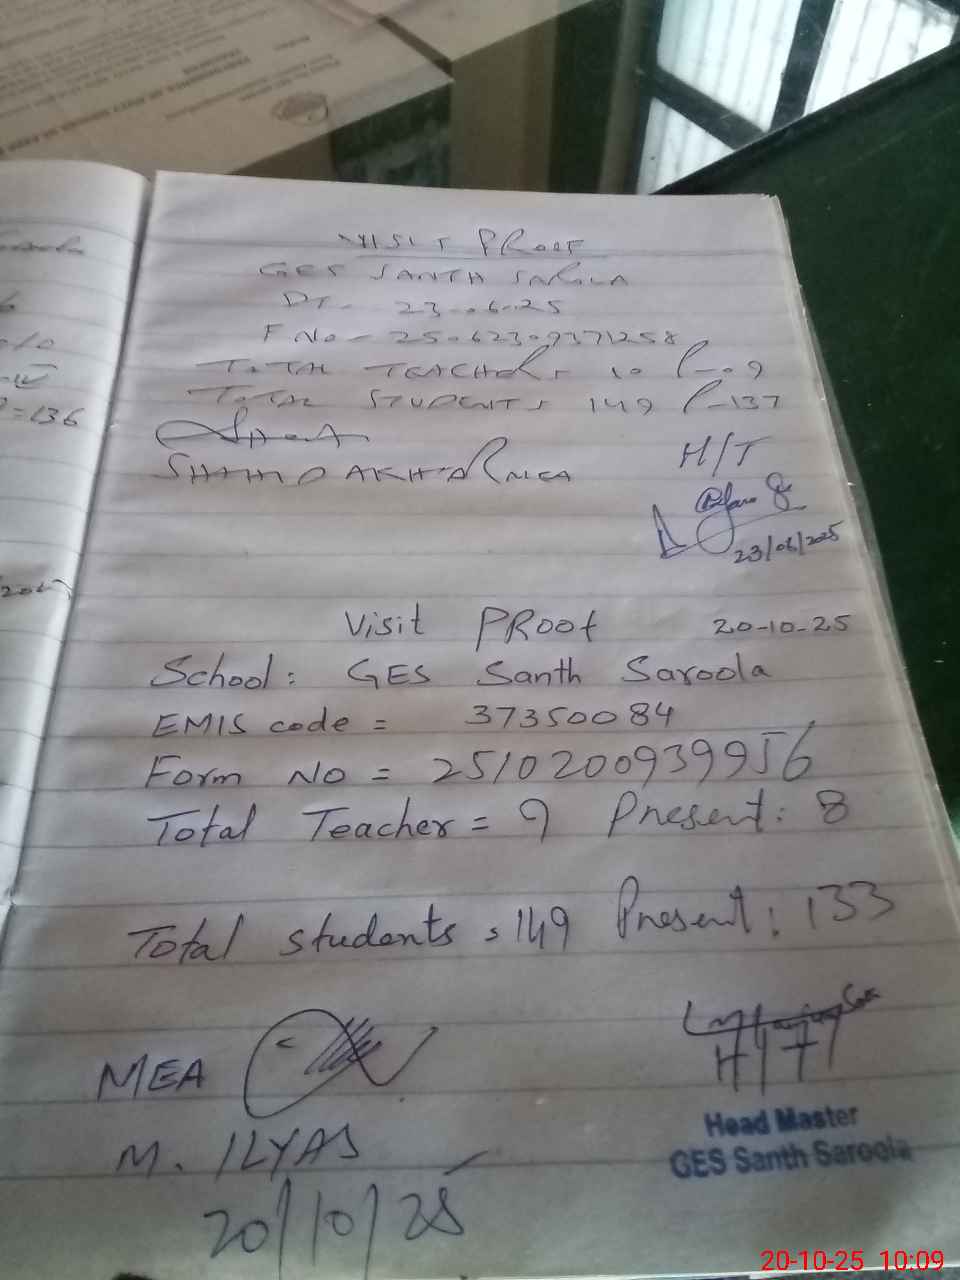 VISIT PROOF
GES SANTH SAROLA
DT- 23-06-25
F No- 25062309371258
TOTAL TEACHERS 10 P-09
TOTAL STUDENTS 149 P-137
SHAHID AKHTAR MEA
H/T
23/06/2025
=136
Visit PRoof 20-10-25
School: GES Santh Saroola
EMIS code = 37350084
Form No = 2510200939956
Total Teacher = 9 Present: 8
Total students = 149 Present: 133
MEA
H/T
M. ILYAS
20/10/25
Head Master
GES Santh Saroola
20-10-25 10:09